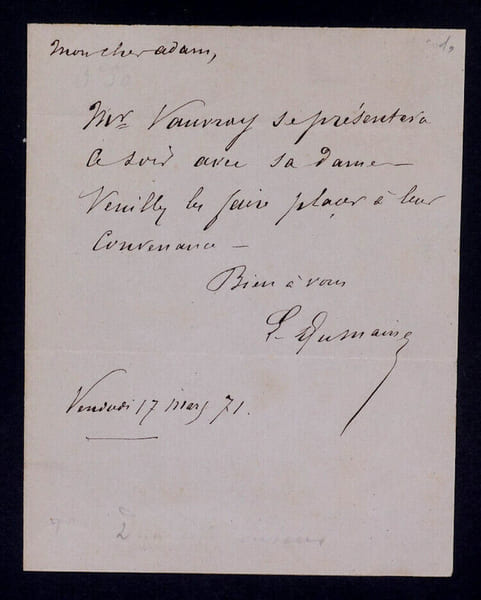 Mon cher adam,
Mr Vauvray se présentera
ce soir avec sa dame —
Veuillez les faire placer à leur
convenance —
Bien à vous
L. Dumaine
Vendredi 17 mars 71.